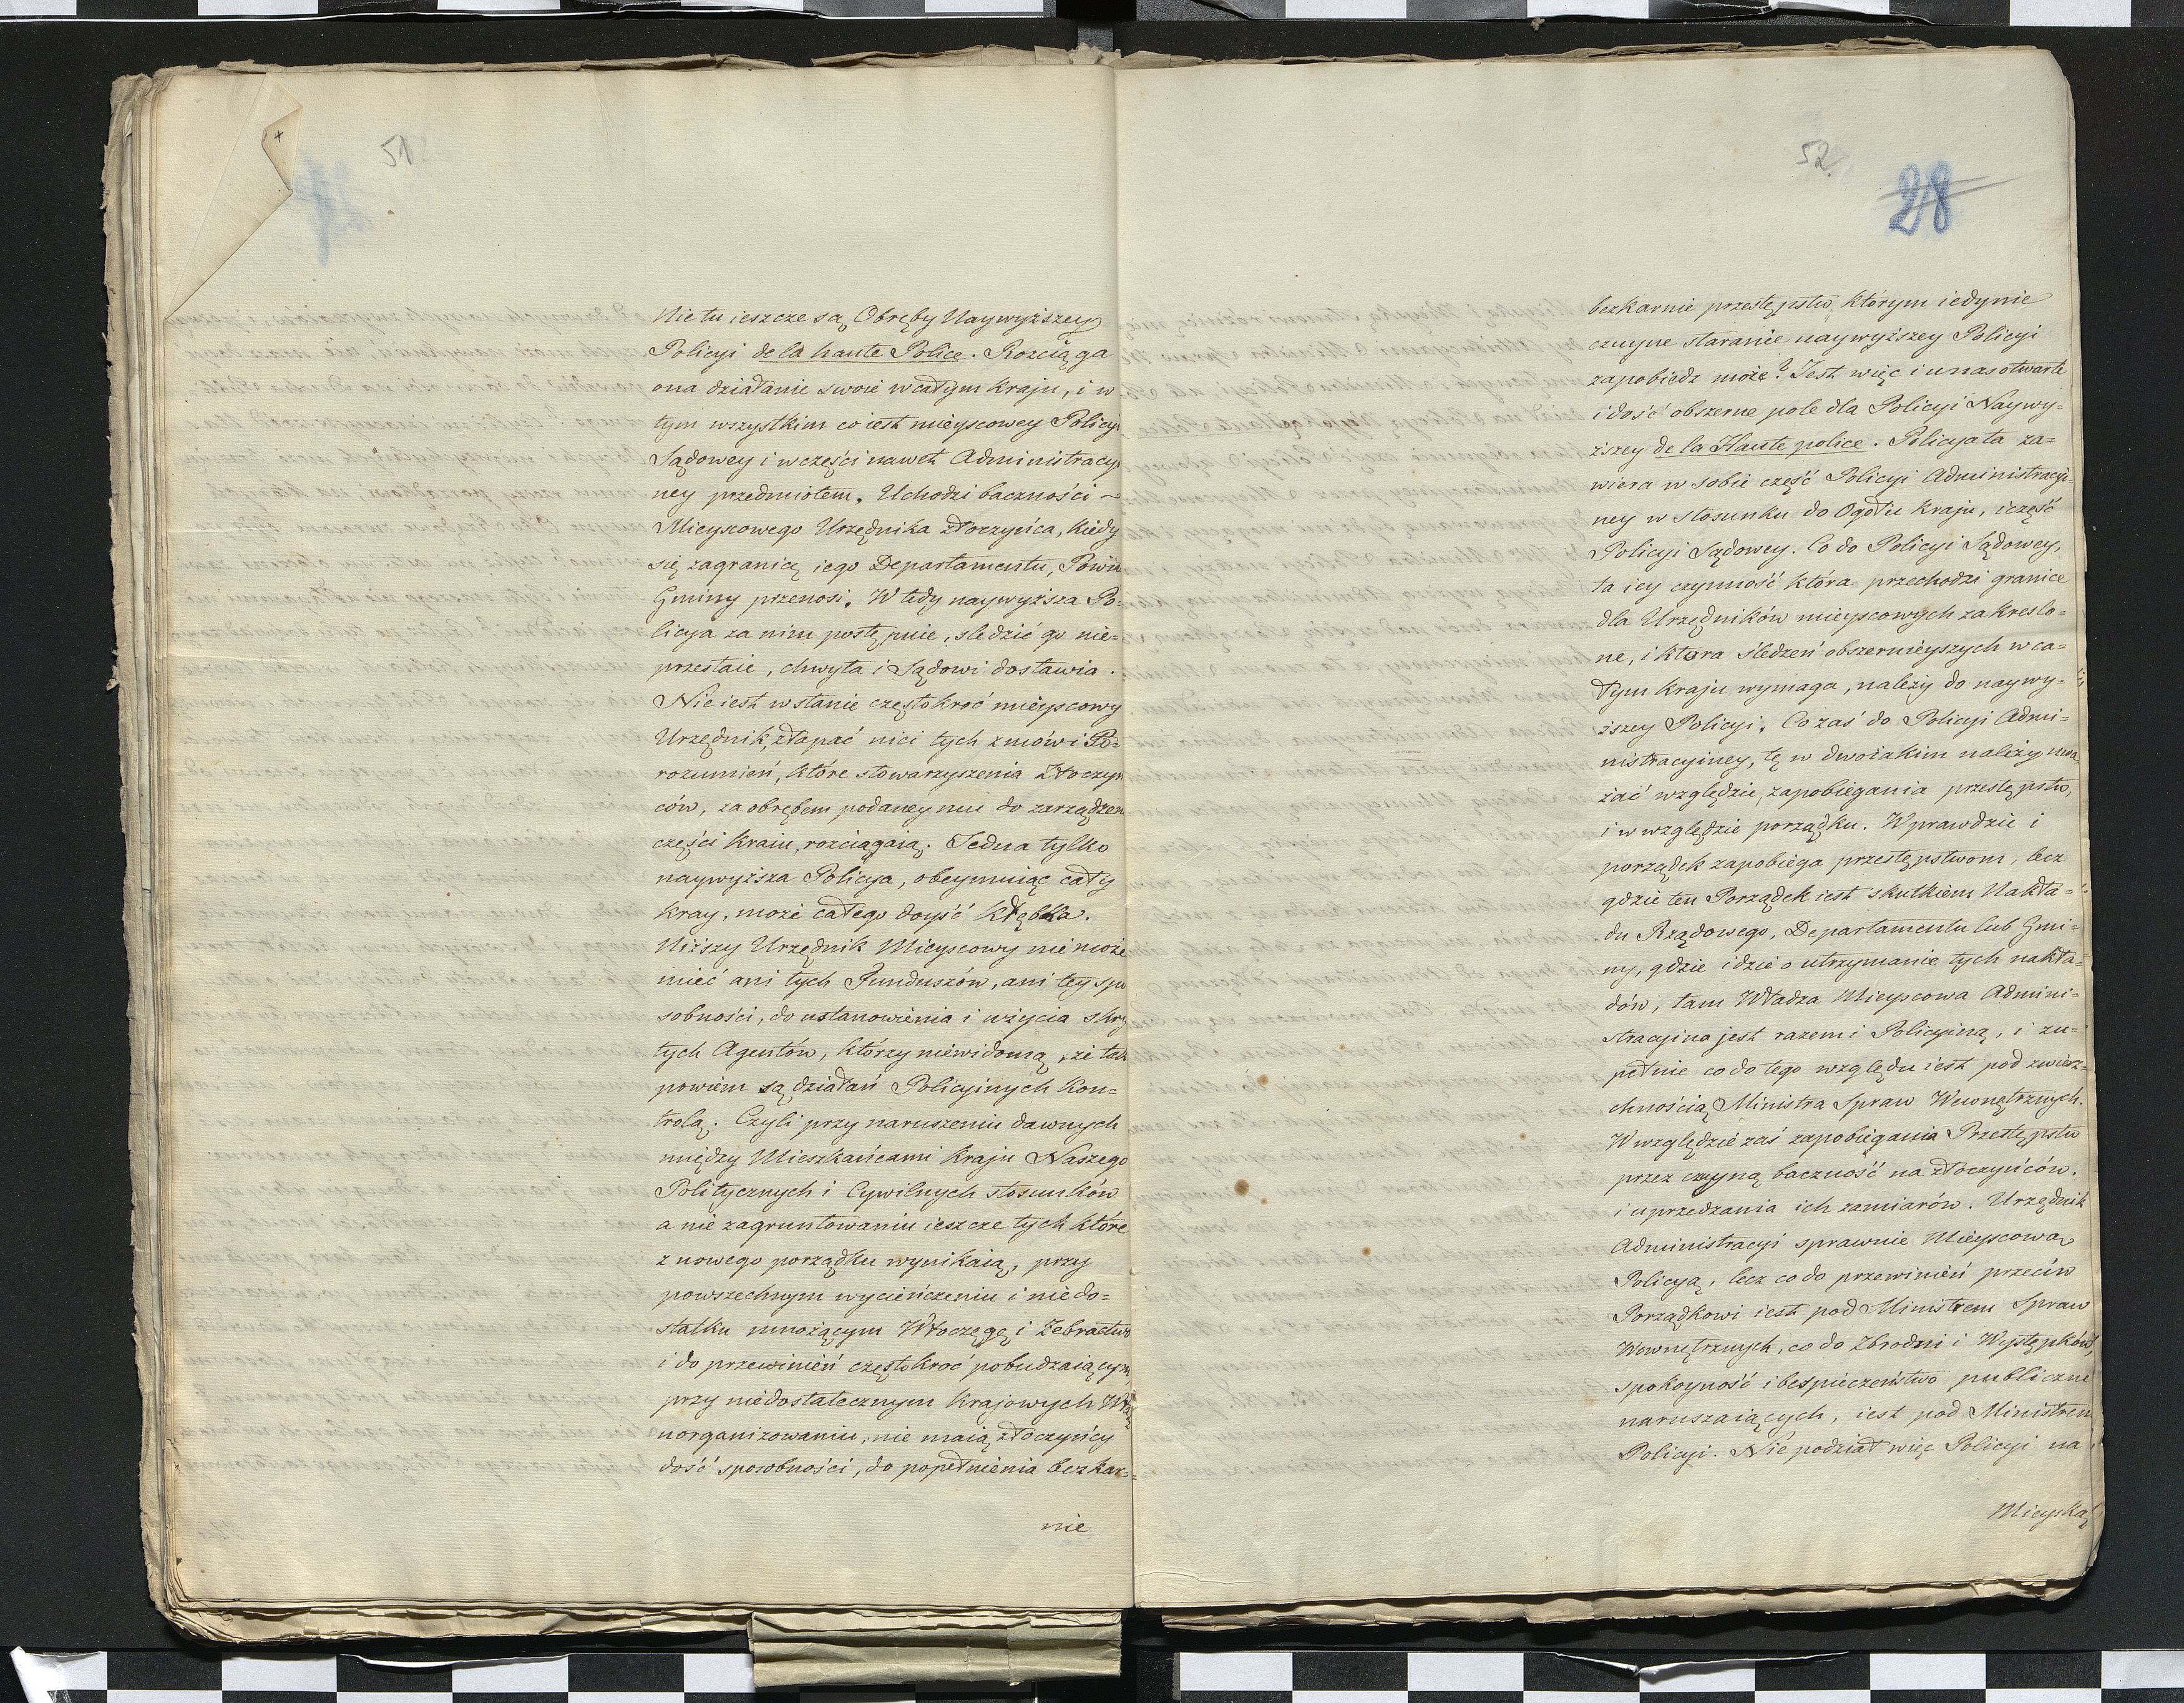 51
Nie tu ieszcze są Obręby Naywyższey
Policyi de la haute Police. Rozciąga
ona działanie swoie w całym kraju, i w
tym wszystkim co iest mieyscowey Policyi
Sądowey i w części nawet Administracyi
ney przedmiotem. Uchodzi baczności –
Mieyscowego Urzędnika złoczyńca, kiedy
się zagranicę iego Departamentu, Powiu
Gminy przenosi. Wtedy naywyższa Po=
licya za nim postępuie, sledzić go nie=
przestaie, chwyta i Sądowi dostawia.
Nie iest w stanie częstokroć mieyscowy
Urzędnik, złapać nici tych zmów i Po=
rozumień, które stowarzyszenia Złoczyń
ców, za obrębem podaney mu do zarządzen
części kraiu, rozciągaią. Jedna tylko
naywyższa Policya, obeymuiąc cały
kray, może całego doyść kłębka.
Niższy Urzędnik Mieyscowy nie może
mieć ani tych Funduszów, ani tey spo
sobności, do ustanowienia i użycia skry
tych Agentów, którzy niewidomą, że tak
powiem są działań Policyinych kon=
trolą. Czyli przy naruszeniu dawnych
między Mieszkańcami kraju Naszego
Politycznych i Cywilnych stosunków
a nie zagruntowaniu ieszcze tych które
z nowego porządku wynikaią, przy
powszechnym wycieńczeniu i niedo=
statku mnożącym Włoczęgę i Żebractwo
i do przewinień częstokroć pobudzaiącym
przy niedostatecznym krajowych Wła
uorganizowaniu, nie maią złoczyńcy
dość sposobności, do popełnienia bezkar=
nie
52.
28
bezkarnie przestępstw, którym iedynie
czuyne staranie naywyższey Policyi
zapobiedz może? Jest więc i u nas otwarte
i dość obszerne pole dla Policyi Naywy=
ższey de la Haute police. Policya ta za=
wiera w sobie część Policyi Administracyi=
ney w stosunku do Ogółu kraju, i część
Policyi Sądowey. Co do Policyi Sądowey,
ta iey czynność która przechodzi granice
dla Urzędników mieyscowych zakreślo=
ne, i która śledzeń obszernieyszych w ca=
łym kraju wymaga, należy do naywy=
ższey Policyi. Co zaś do Policyi Admi=
nistracyiney, tę w dwoiakim należy uwa
żać względzie, zapobiegania przestępstw,
i w względzie porządku. Wprawdzie i
porządek zapobiega przestępstwom, lecz
gdzie ten Porządek iest skutkiem Nakła=
du Rządowego, Departamentu lub Gmi=
ny, gdzie idzie o utrzymanie tych nakła=
dów, tam Władza Mieyscowa Admini=
stracyina jest razem i Policyiną, i zu=
pełnie co do tego względu iest pod zwierz=
chnością Ministra Spraw Wewnętrznych.
W względzie zaś zapobiegania Przestępstw
przez czuyną baczność na złoczyńców,
i uprzedzania ich zamiarów. Urzędnik
Administracyi sprawuie Mieyscową
Policyą, lecz co do przewinień przeciw
Porządkowi iest pod Ministrem Spraw
Wewnętrznych, co do Zbrodni i Występków,
spokoyność i bespieczeństwo publiczne
naruszaiących, iest pod Ministrem
Policyi. Nie podział więc Policyi na
Mieyską